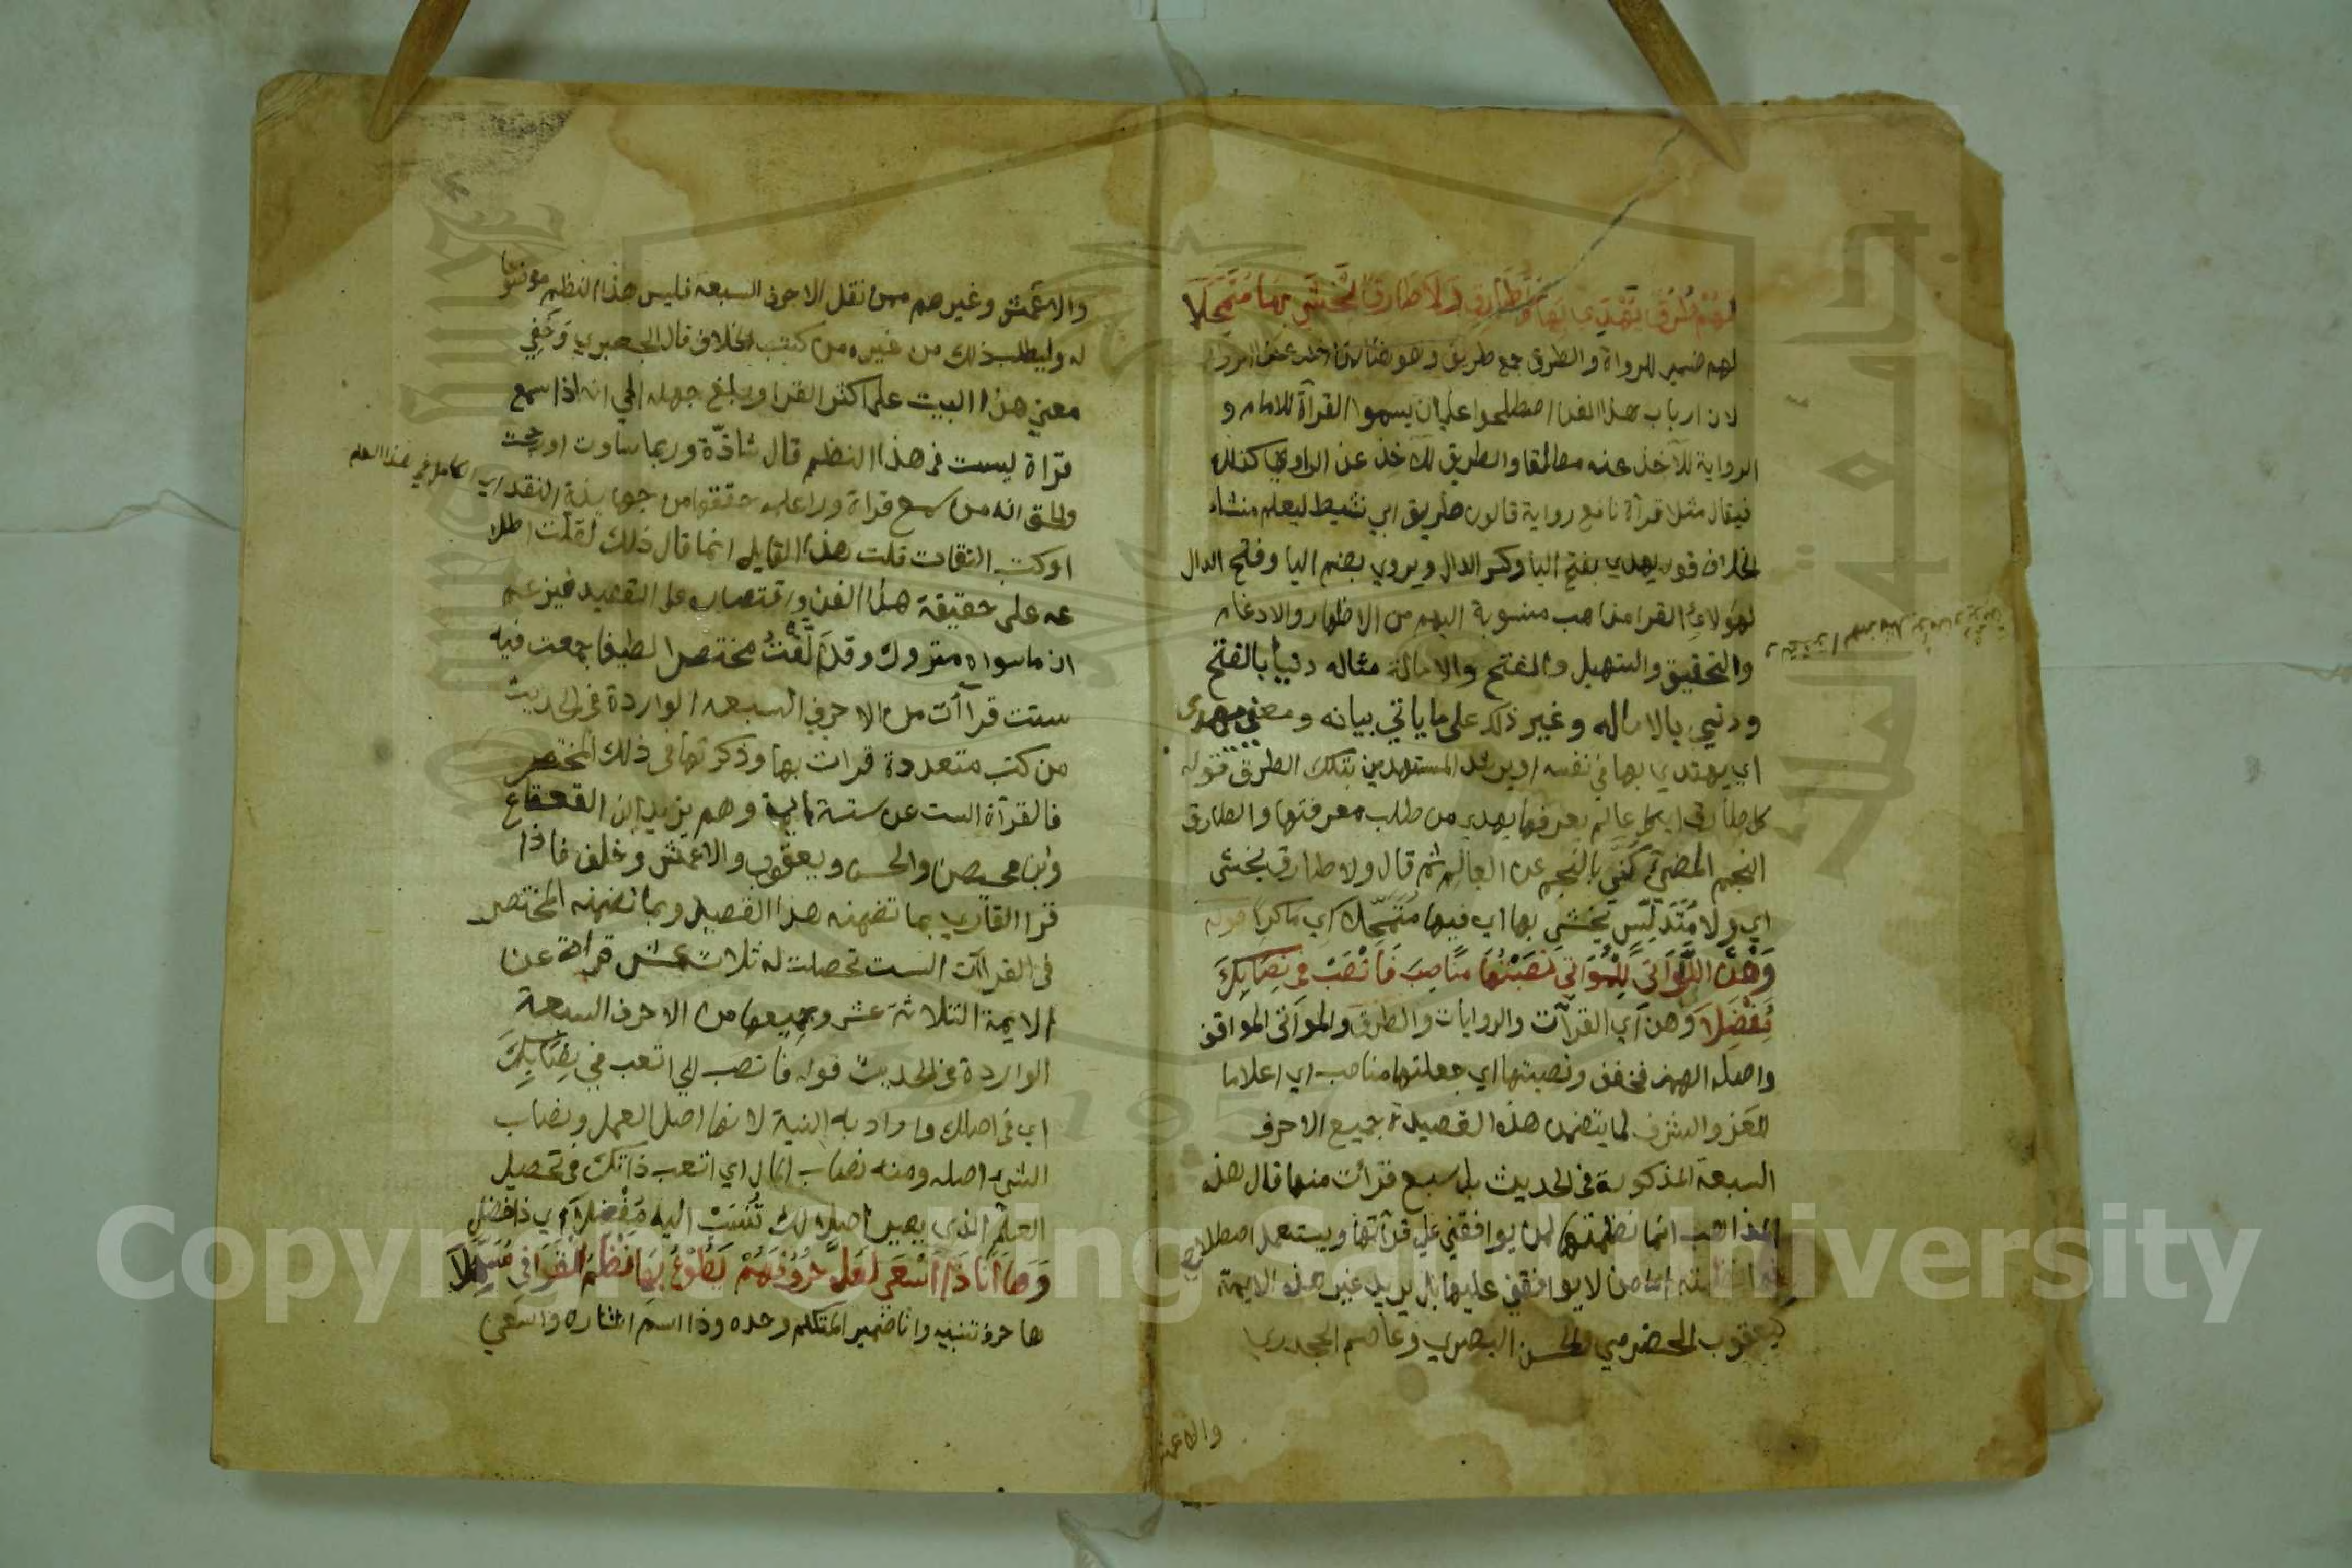 لهم طرق يهدى بها كل طارق ولا طارق يخشى بها متمحلا
لهم ضمير للرواة والطرق جمع طريق وهو هنا لمن اخذ عن الرواة
لان ارباب هذا الفن اصطلحوا علي ان يسموا القرآة للامام و
الرواية للآخذ عنه مطلقا والطريق للآخذ عن الراوي كذلك
فيقال مثلا قرآة نافع رواية قالون طريق ابي نشيط ليعلم منشاء
الخلاف قوله يهدي بفتح اليا وكسر الدال ويروي بضم اليا وفتح الدال
لهولاء القرا مذاهب منسوبة اليهم من الاظهار والادغام
والتحقيق والتسهيل والفتح والامالة مثاله دنيا بالفتح
ودنيي بالاماله وغير ذلك على ما ياتي بيانه ومعني يهدى
اي يهتدي بها في نفسه او يرشد المستهدين بتلك الطرق قوله
كل طارق اي كل عالم يعرفها يهدي من طلب معرفتها والطارق
النجم المضيء كني بالنجم عن العالم ثم قال ولا طارق يخشى
اي ولا مدلس يخشى بها اي فيها متمحلا اي ماكرا قوله
وهن اللواتي للمواتي نصبتها مناصب فانصب في نصابك
مفضلا وهن اي القرآت والروايات والطرق والمواتى الموافق
واصله الهمز فخفف ونصبتها اي جعلتها مناصب اي اعلاما
للعز والشرف لما يتضمن هذه القصيدة جميع الاحرف
السبعة المذكورة في الحديث بل سبع قرآت منها قال هذه
المذاهب انما نظمتها لمن يوافقني علي قرآتها ويستعمل اصطلاحي
اما من لا يوافقني عليها بل يريد غير هذه الايمة
كيعقوب الحضرمي والحسن البصري وعاصم الجحدري
والاعمش
والاعمش وغيرهم ممن نقل الاحرف السبعة فليس هذا النظم موضوعا
له وليطلب ذلك من غيره من كتب الخلاف قال الجعبري وخفي
معني هذا البيت على اكثر القرا وبلغ جهله الي انه اذا سمع
قراة ليست في هذا النظم قال شاذة وربما ساوت او رجحت
والحق انه من سمع قراة وراء علمه حققها من جهابذة النقد اي الكامل في هذا العلم
او كتب الثقات قلت هذا القايل انما قال ذلك لقلت اطلا
عه على حقيقة هذا الفن واقتصاره على القصيد فيزعم
ان ماسواه متروك وقد الفت مختصرا لطيفا جمعت فيه
ستت قراآت من الاحرف السبعه الواردة في الحديث
من كتب متعددة قرات بها وذكرتها في ذلك المختصر
فالقرآة الست عن ستة ايمة وهم يزيد ابن القعقاع
وابن محيصن والحسن ويعقوب والاعمش وخلف فاذا
قرا القاري بما تضمنه هذا القصيد وبما تضمنه المختصر
في القرآت الست تحصلت له ثلاث عشر قراة عن
الايمة الثلاثة عشر وجميعها من الاحرف السبعة
الواردة في الحديث قوله فانصب اي اتعب في نصابك
اي في اصلك واراد به النية لانها اصل العمل ونصاب
الشيء اصله ومنه نصاب المال اي اتعب ذاتك في تحصيل
العلم الذي يصير اصلا لك تنسب اليه مفضلا اي ذا فضل
وها انا ذا اسعى لعل حروفهم يطوع بها نظم القوافي مسهلا
ها حرف تنبيه وانا ضمير المتكلم وحده وذا اسم اشاره واسعي
Copyright © King Saud University
جامعة الملك
1957